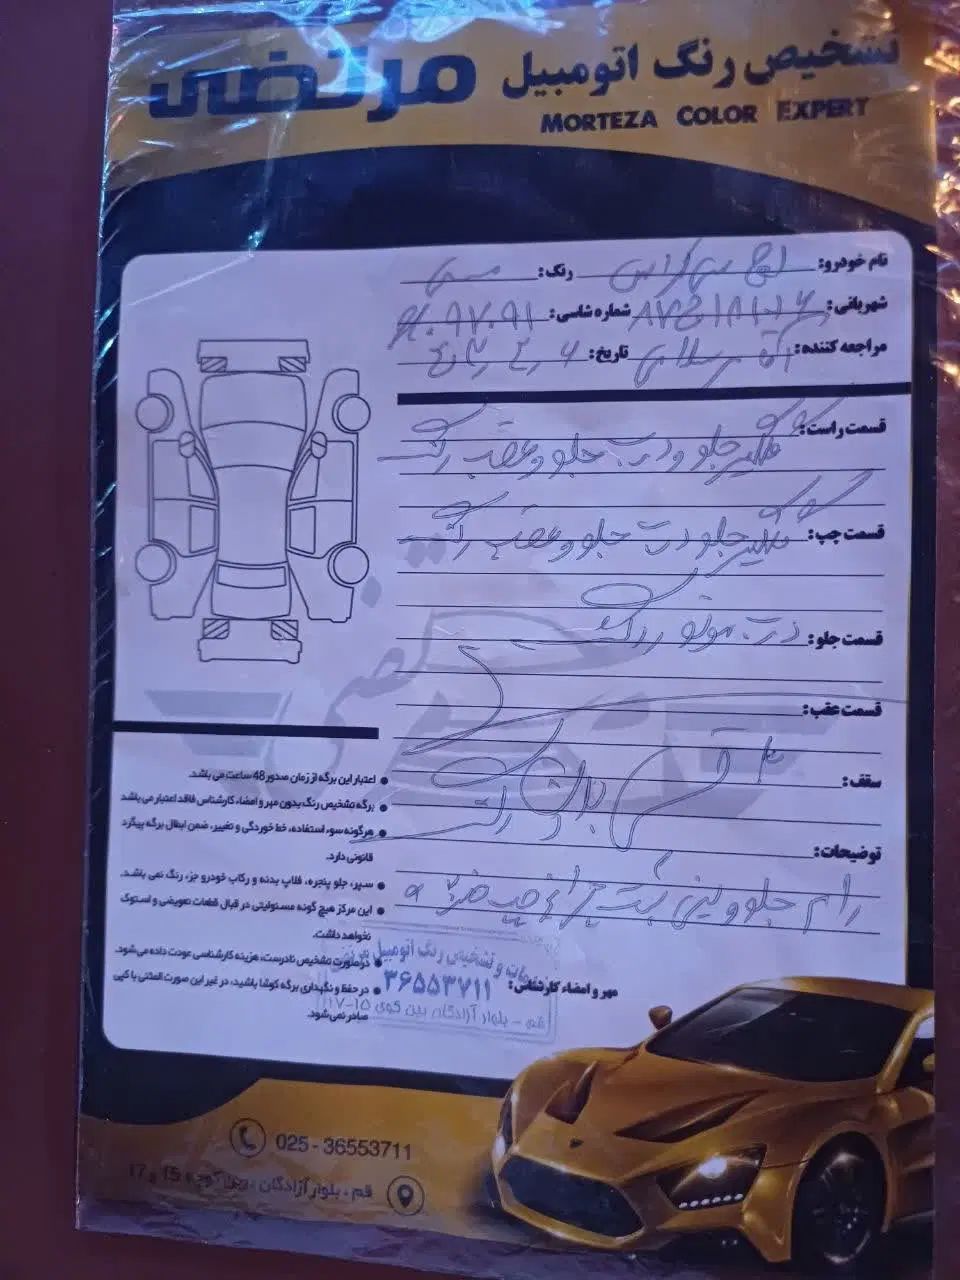 تشخیص رنگ اتومبیل مرتضی
MORTEZA COLOR EXPERT
نام خودرو: اچ سی کراس رنگ: مسی
شهربانی: شماره شاسی:
مراجعه کننده: تاریخ:
قسمت راست: گلگیر جلو و درب جلو و عقب رنگ
قسمت چپ: گلگیر جلو درب جلو و عقب رنگ
قسمت جلو: درب موتور رنگ
قسمت عقب:
سقف:
توضیحات:
رام جلو و سینی پشت چراغ چپ ضربه
مهر و امضاء کارشناس:
اعتبار این برگه از زمان صدور 48 ساعت می باشد.
برگه تشخیص رنگ بدون مهر و امضاء کارشناس فاقد اعتبار می باشد
هرگونه سوء استفاده، خط خوردگی و تغییر، ضمن ابطال برگه پیگرد
قانونی دارد.
سپر، جلو پنجره، فلاپ بدنه و رکاب خودرو جزء رنگ نمی باشد.
این مرکز هیچ گونه مسئولیتی در قبال قطعات تعویضی و استوک
نخواهد داشت.
درصورت تشخیص نادرست، هزینه کارشناسی عودت داده می شود.
در حفظ و نگهداری برگه کوشا باشید، در غیر این صورت المثنی یا کپی
صادر نمی شود.
و تشخیص رنگ اتومبیل
۳۶۵۵۳۷۱۱
قم - بلوار آزادگان بین کوی ۱۵-۱۷
025 - 36553711
قم ، بلوار آزادگان ، بین کوچه 15 و 17